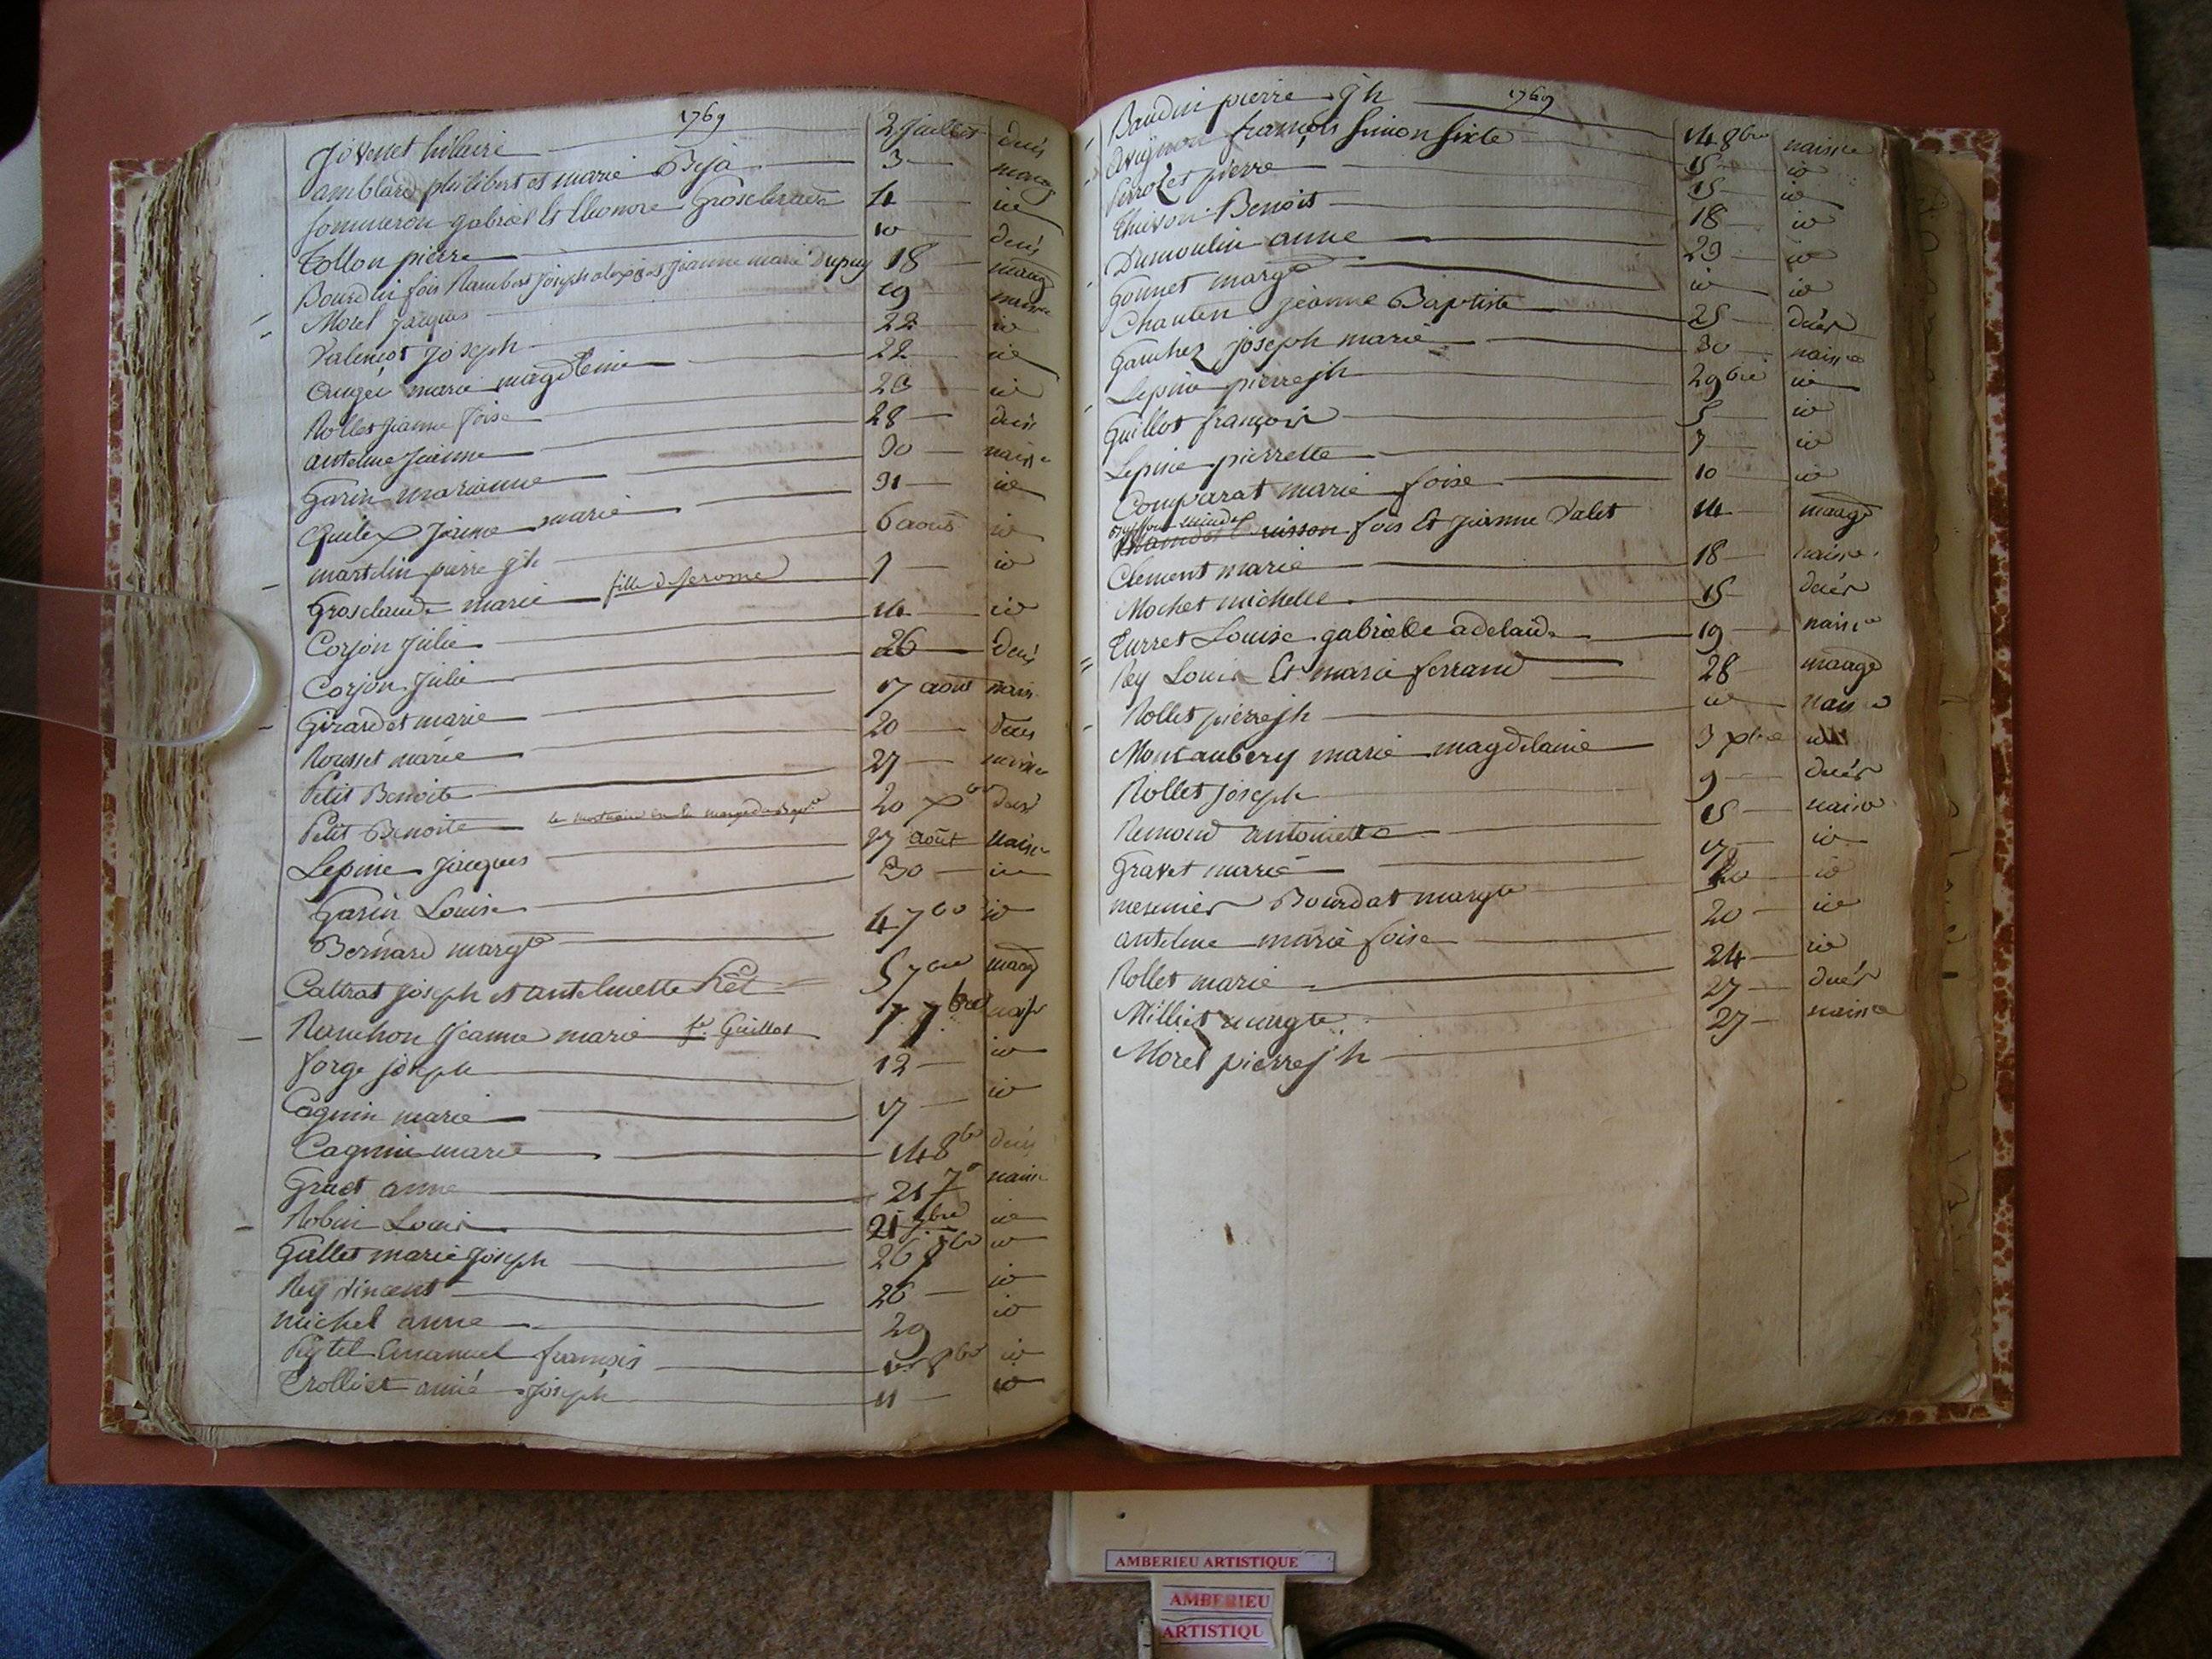 1769
Jovenet hilaire 2 Juillet decés
amblard philibert et marie Beja 3 mariage
Sommeron gabriel Et Eleonore Grosclaude 4 id
Tollon pierre 10 decés
Bourdin fois Rambert Joseph et Jeanne marie Dupuy 18 mariage
Morel Jacques 19 naissce
Valencot Joseph 22 id
Augei marie magdleine 22 id
Rollet Jeanne foise 23 id
antelme Jeanne 28 decés
Garin marianne 30 naissce
Jeanne marie 31 id
martelin pierre jh 6 aoust id
Grosclaude marie fille de Jerome 7 id
Corjon Julie 14 id
Corjon Julie 26 decés
Girardet marie 17 aoust naiss
Rousset marie 20 decés
Petit Benoite 27 naissce
Petit Benoite 20 decés
Lepine Jacques 27 août naissce
Garin Louise 30 id
Bernard margte 4 7bre id
Cattrat Joseph et antelmette Rêt 5 7bre mariage
Ranchon Jeanne marie fe Guillot 7 7bre naisse
forge joseph 12 id
Cagnin marie 17 id
Cagnin marie 14 8bre decés
Gruet anne 21 7e naissce
Robin Louis 21 7bre id
Gullet marie Joseph 26 7bre id
Rey vincent 26 id
michel anne 29 id
Peytel Emanuel françois 8bre id
Trolliet aimé Joseph 11 id
1769
Baudin pierre jh 14 8bre naissce
Avignon françois simon sixte 15 id
Perrozet pierre 15 id
Thivson Benoit 18 id
Dumoulin anne 23 id
Gonnet margte id id
Chanten jeanne Baptiste 25 decés
Ganchez joseph marie 30 naissce
Lepine pierre jh 2 9bre id
Guillot françois 5 id
Lepine pierrette 7 id
Comparat marie foise 10 id
fois Et Jeanne Valet 14 mariage
Clement marie 18 naisse
Mochet michelle 15 decés
Turret Louise gabrielle adelaide 19 naissce
Rey Louis Et marie ferrand 28 mariage
Rollet pierre jh id naissce
Montaubery marie magdelaine 3 xbre id
Rollet Joseph 9 decés
Renaud antoinette 15 naissce
Gravet marie 17 id
mesmier Bourdat margte 20 id
antelme marie foise 20 id
Rollet marie 24 id
Milliet margte 27 decés
Morel pierre jh 27 naissce
AMBERIEU ARTISTIQUE
AMBERIEU
ARTISTIQU